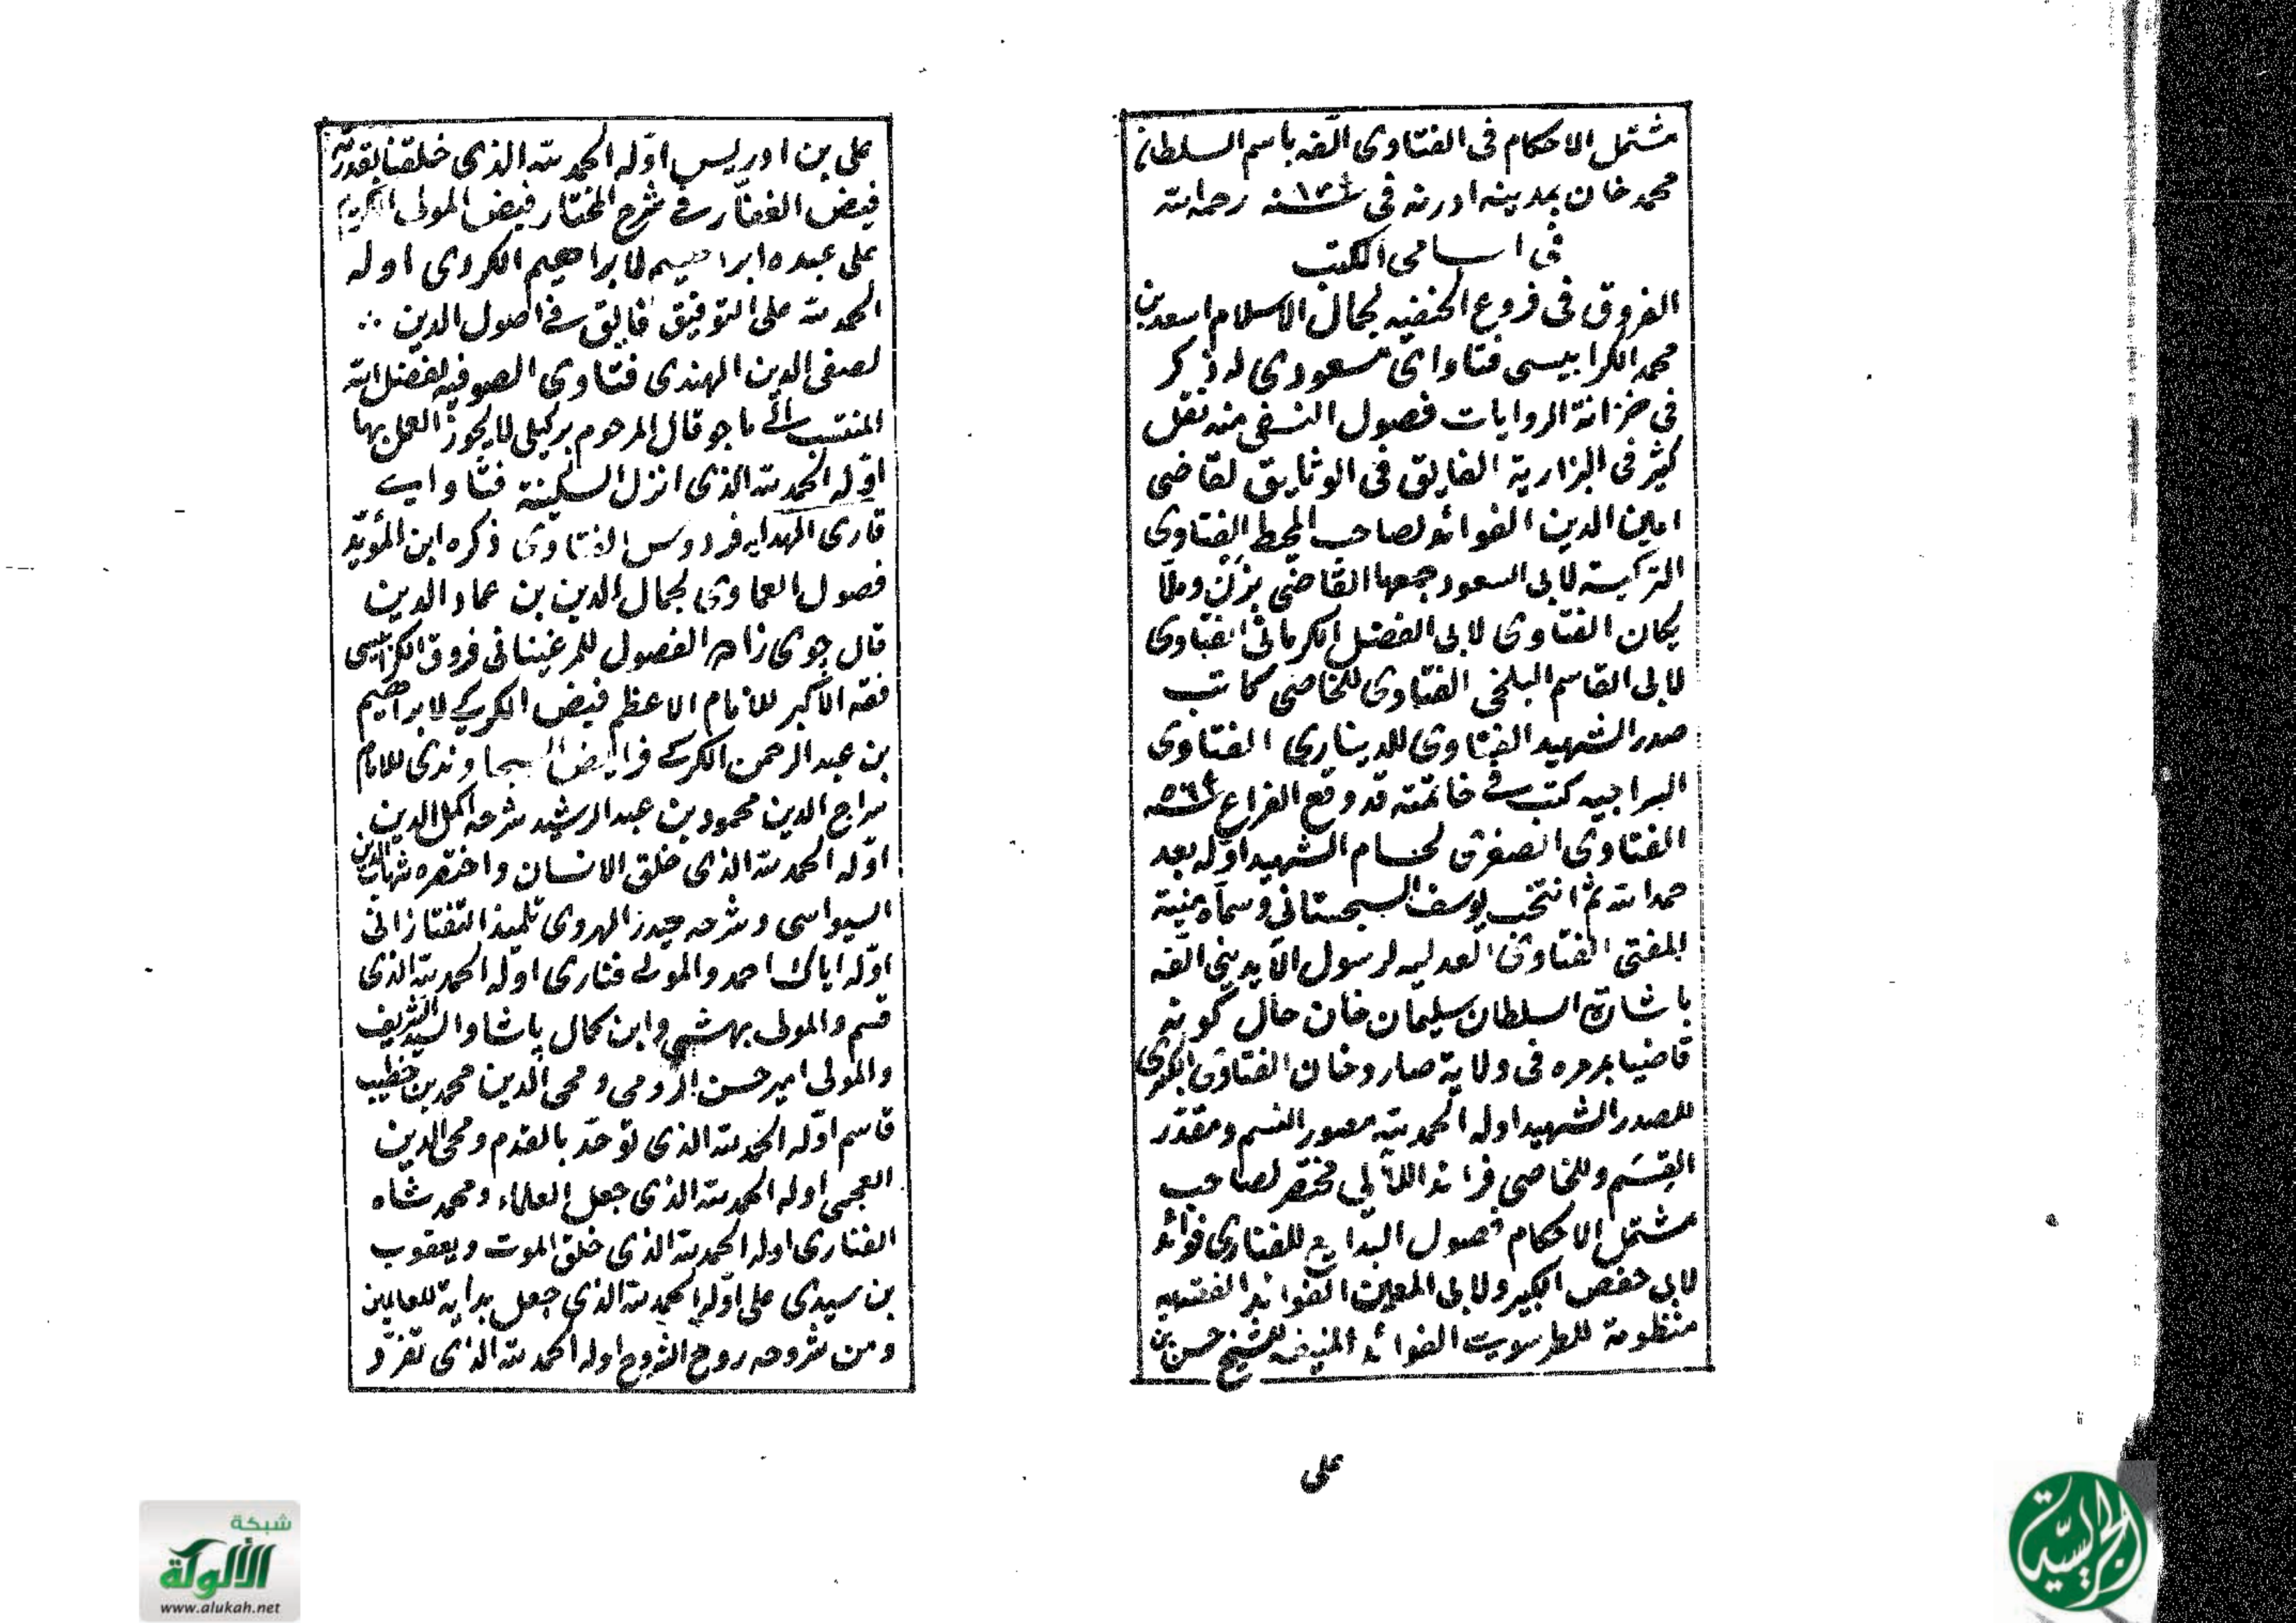 مشتمل الاحكام فى الفتاوى الّفه باسم السلطان
محمد خان بمدينه ادرنه فى سنه رحمه الله
فى اسامى الكتب
الفروق فى فروع الحنفيه لجمال الاسلام اسعد بن
محمد الكرابيسى فتاواى مسعودى له ذكر
فى خزانة الروايات فصول النسفى منه نقل
كثير فى البزارية الفايق فى الوثايق لقاضى
امين الدين الفوائد لصاحب المحيط الفتاوى
التركية لابى السعود جمعها القاضى بزن وملّا
يكان الفتاوى لابى الفضل الكرمانى الفتاوى
لابى القاسم البلخى الفتاوى للخاصى كاتب
صدر الشهيد الفتاوى للديناري الفتاوى
السراجيه كتب فى خاتمته قد وقع الفراغ سنه
الفتاوى الصغرى لحسام الشهيد اوله بعد
حمد الله ثم انتخب يوسف السجستانى وسماه بمنية
المفتى الفتاوى العدليه لرسول الآيدينى الفه
باشارة السلطان سليمان خان حال كونه
قاضيا بمرمره فى ولاية صاروخان الفتاوى الكبرى
للصدر الشهيد اوله الحمد لله مصور النسم ومقدّر
القِسَم وللخاصى فرائد اللآلى مختصر لصاحب
مشتمل الاحكام فصول البدايع للفنارى فوائد
لابى حفص الكبير ولابى المعين الفوائد الفقهيه
منظومة للطرسوسى الفوائد المنيفه للشيخ حسن بن
على
على بن ادريس اوّله الحمد لله الذى خلقنا بقدرته
فيض الغفّار فى شرح المختار فيض المولى الكريم
على عبده ابراهيم لابراهيم الكردى اوله
الحمد لله على التوفيق فايق فى اصول الدين
لصفى الدين الهندى فتاوى الصوفيه لفضل الله
المنتسب الى ماجو قال المرحوم بركيلى لا يجوز العمل بها
اوّله الحمد لله الذى انزل السكينة فتاواى
قارى الهدايه فردوس الفتاوى ذكره ابن المؤيّد
فصول العمادى لجمال الدين بن عماد الدين
قال جوى زاده الفصول للمرغينانى فروق الكرابيسى
فقه الاكبر للامام الاعظم فيض الكركى لابراهيم
بن عبد الرحمن الكركى فرايض السجاوندى للامام
سراج الدين محمود بن عبد الرشيد شرحه اكمل الدين
اوّله الحمد لله الذى خلق الانسان واختصره شهاب الدين
السيواسى وشرحه حيدر الهروى تلميذ التفتازانى
اوّله اياك احمد والمولى فنارى اوله الحمد لله الذى
قسم والمولى بهشتى وابن كمال پاشا والسيد الشريف
والمولى امير حسن الرومى ومحى الدين محمد بن خطيب
قاسم اوّله الحمد لله الذى توحّد بالقدم ومحى الدين
العجمى اوله الحمد لله الذى جعل العلماء ومحمد شاه
الفنارى اوله الحمد لله الذى خلق الموت ويعقوب
بن سيدى على اوّله الحمد لله الذى جعل بداية للعالمين
ومن شروحه روح الشروح اوله الحمد لله الذى تفرّد
شبكة
الألوكة
www.alukah.net